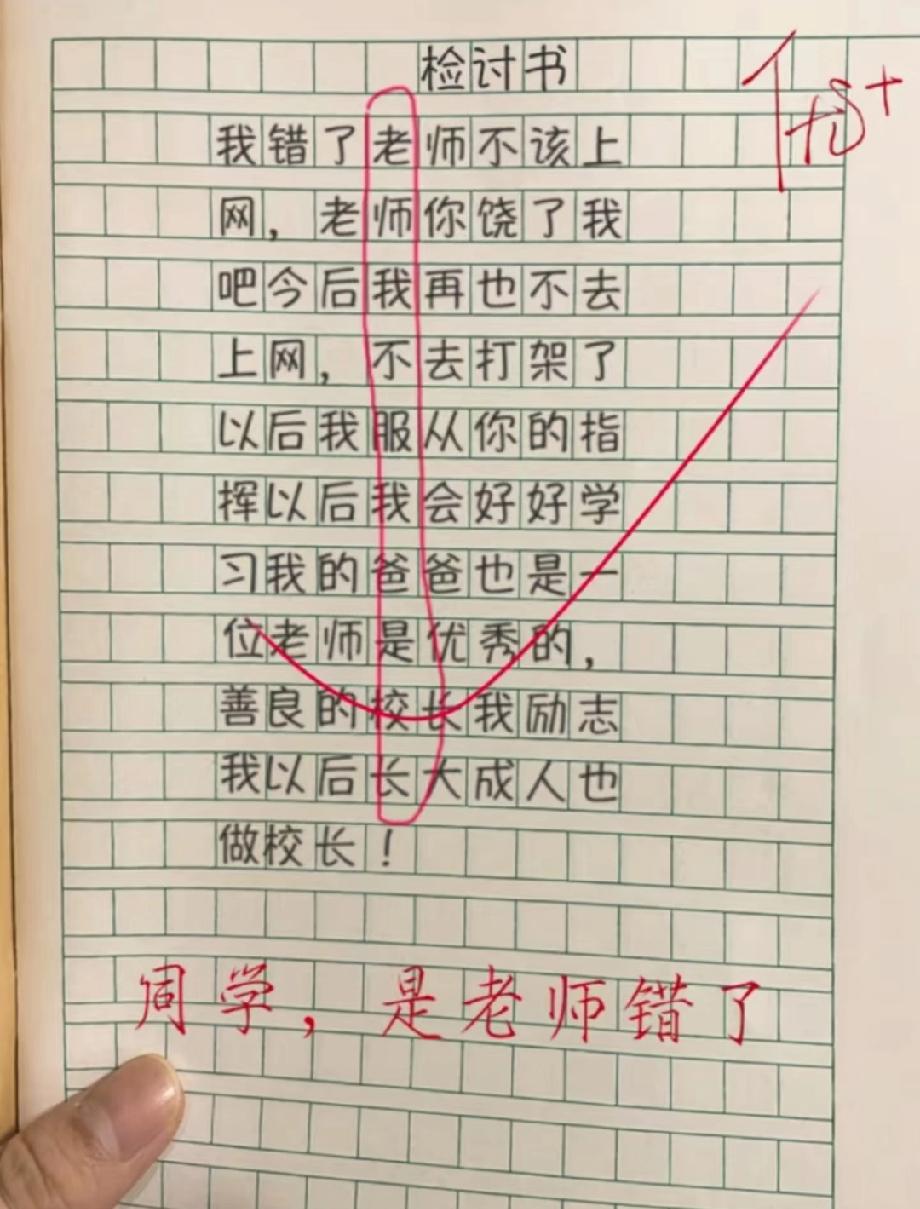 检讨书
优+
我错了老师不该上
网，老师你饶了我
吧今后我再也不去
上网，不去打架了
以后我服从你的指
挥以后我会好好学
习我的爸爸也是一
位老师是优秀的，
善良的校长我励志
我以后长大成人也
做校长！
同学，是老师错了